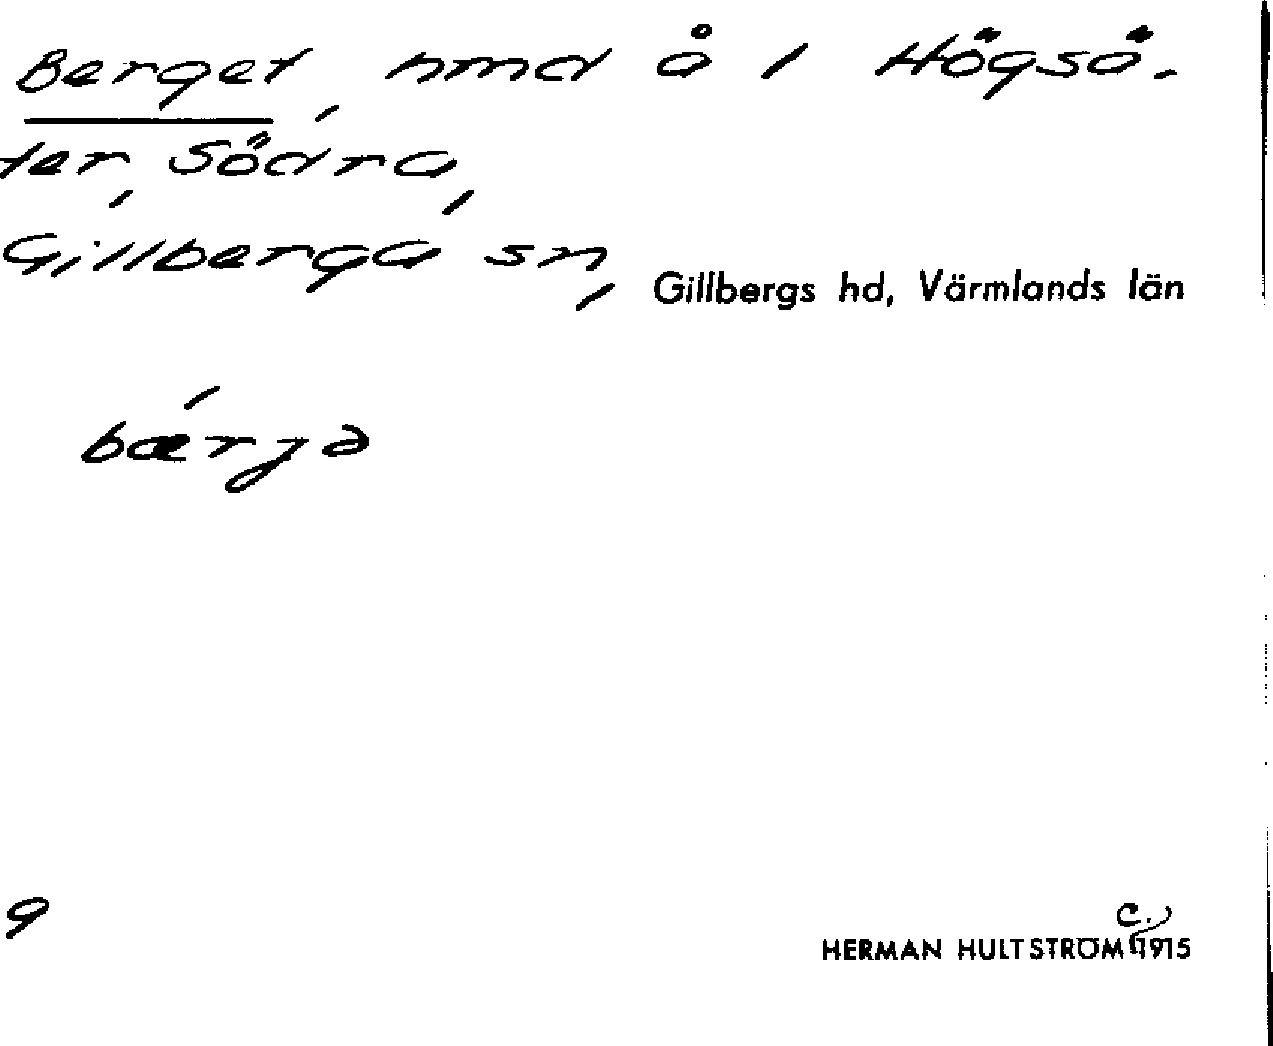 Berget, hmd å 1 Högsä-
ter, Södra,
Gillberga sn, Gillbergs hd, Värmlands län
bæ´rjə
9
HERMAN HULTSTRÖM c. 1915